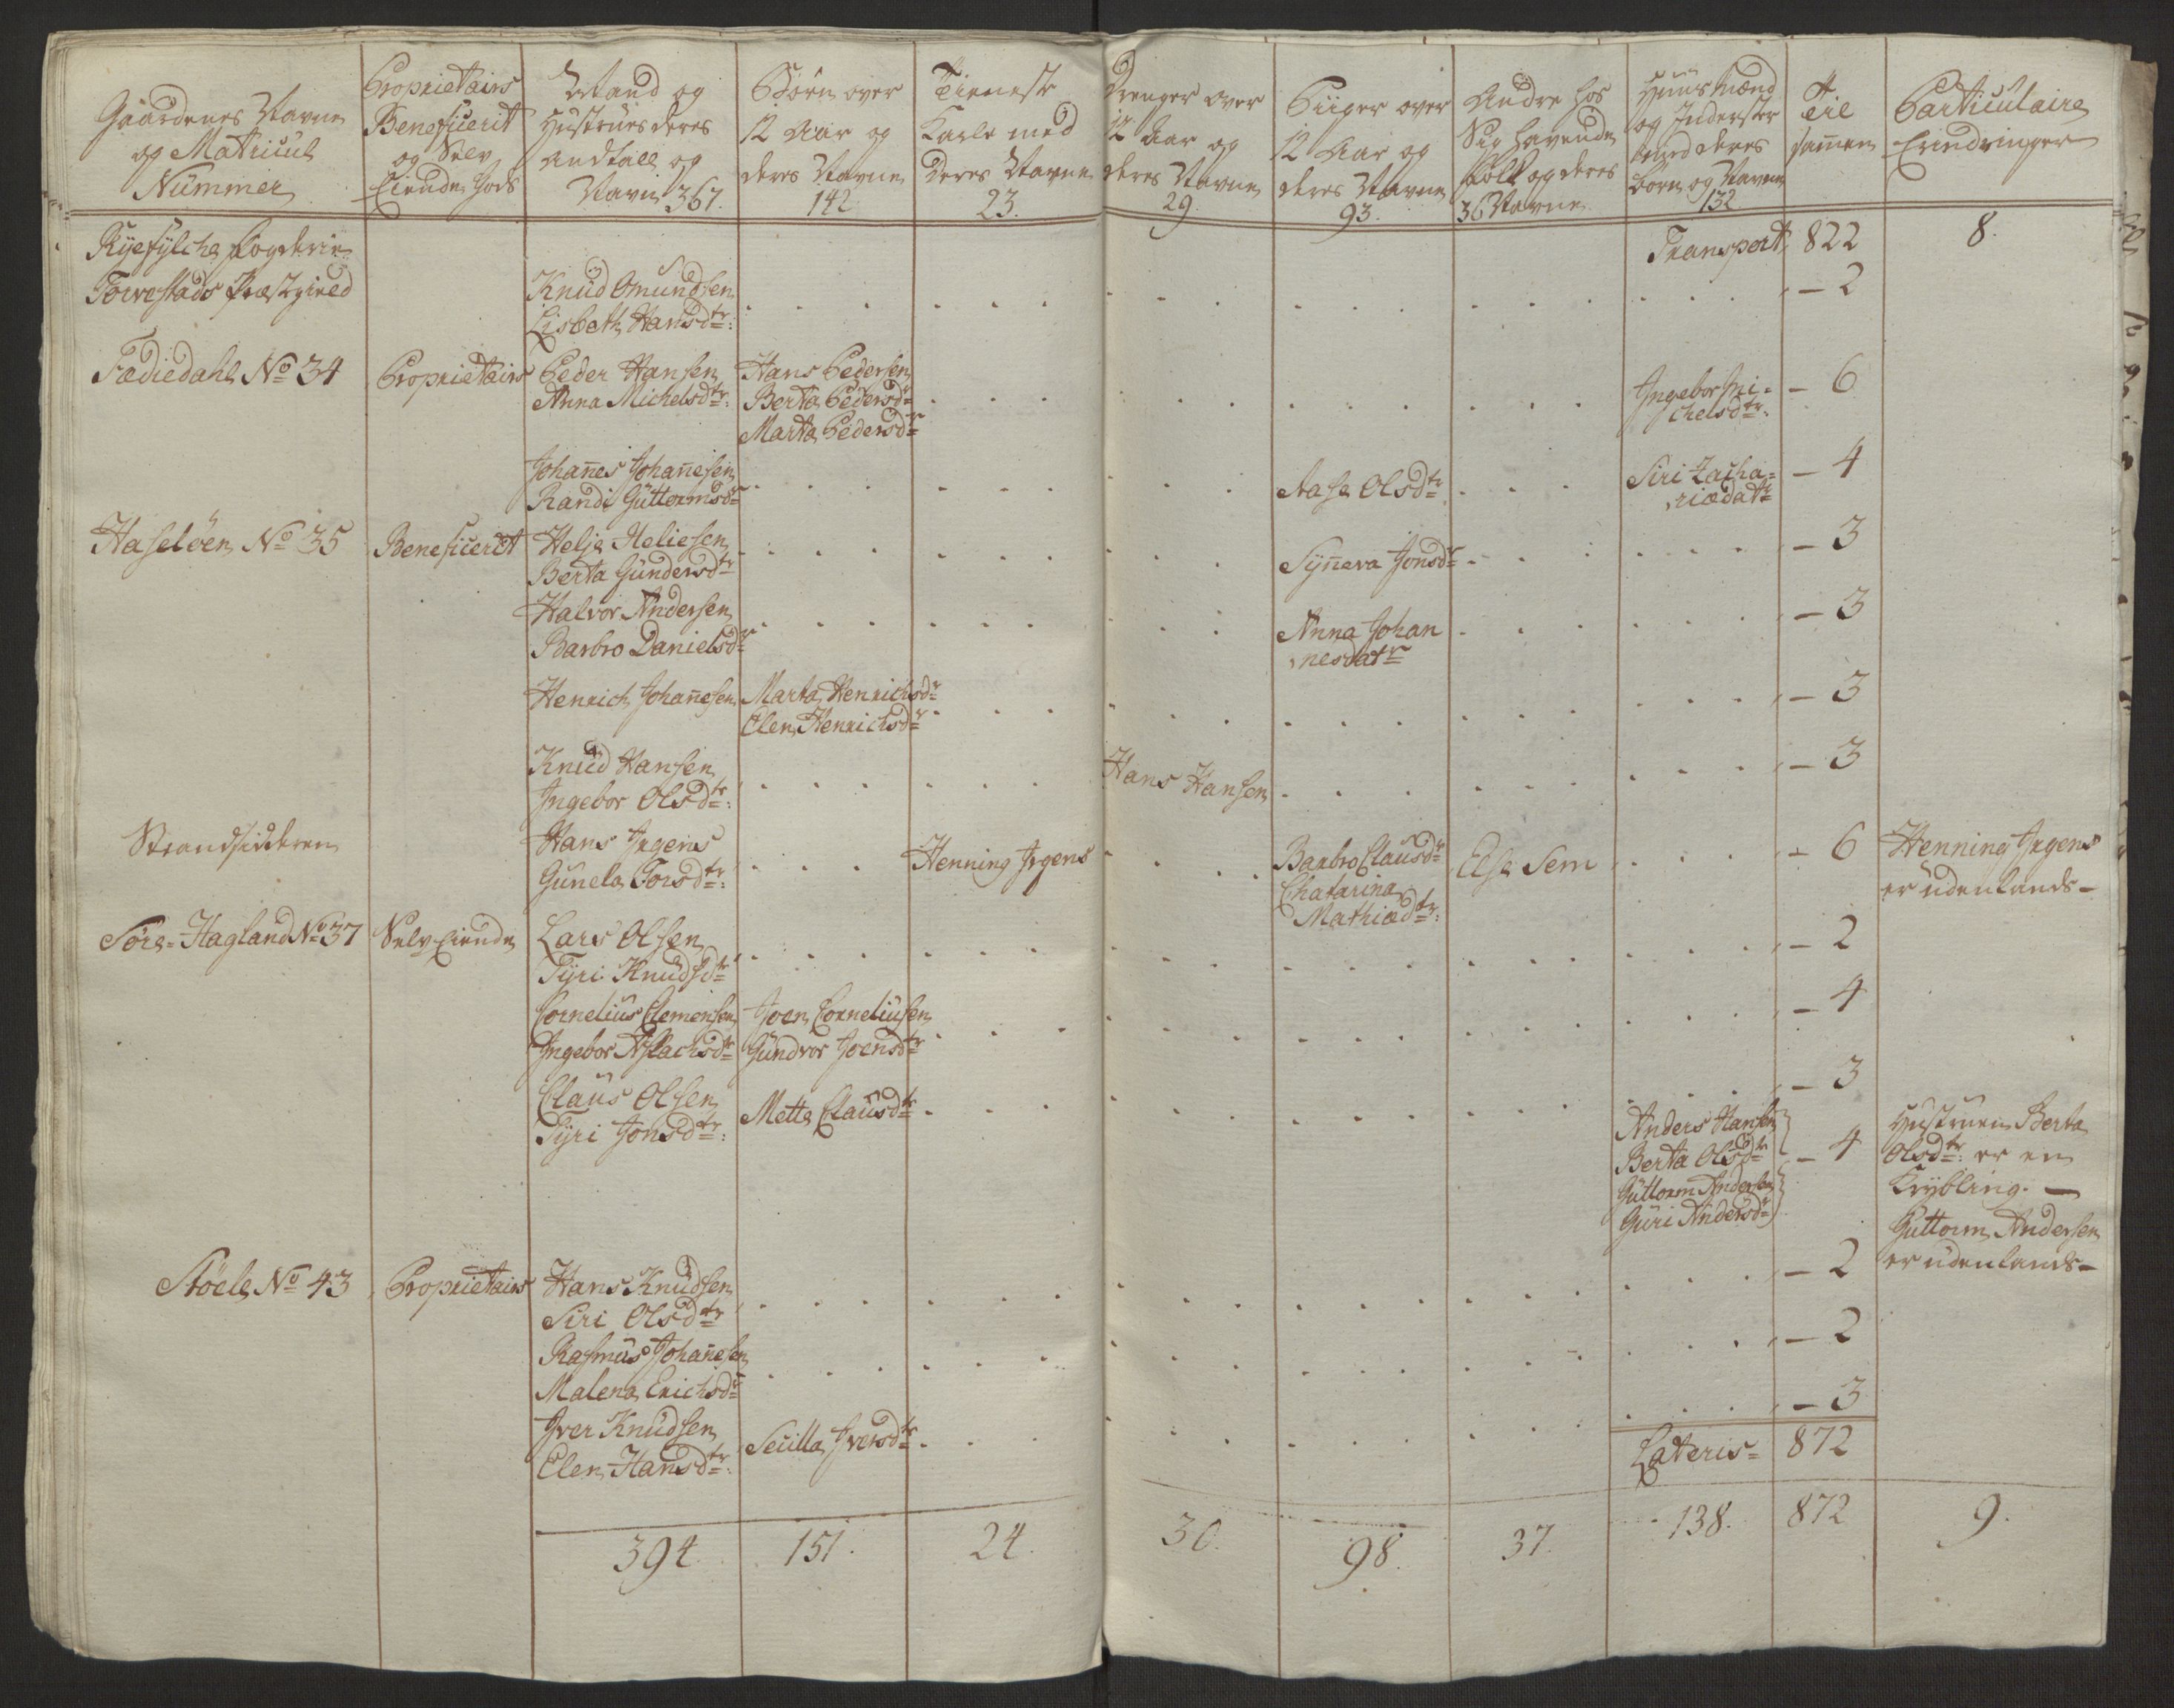 Gaardenes Navne
og Matricul
Nummer
Proprietairs
Beneficerit
og Selv
Eiende Gods
Mand og
Hustrues deres
Andtall og
Navn 367.
Børn over
12 Aar og
deres Navne
142
Tieneste
Karle med
Deres Navne
23.
Drenger over
12 Aar og
deres Navne
29.
Piiger over
12 Aar og
deres Navne
93.
Andre hos
Sig havende
Folk og deres
36 Navne
Huusmænd
og Inderster
med deres
børn og Navne
132
Til
samen
Particulaire
Erindringer
Ryefylche Fogderie
Torvestads Præstgield
Transport 822
8.
Knud Omundsen
Lisbeth Hansdtr:
- 2
Fædiedahl No 34
Proprietairs
Peder Hansen
Anna Michelsdtr:
Hans Pedersen
Berta Pedersdr
Marta Pedersdr
Ingebor Mi=
chelsdtr:
- 6
Johanes Johanesen
Randi Guttormsdr
Aase Olsdtr
Siri Zacha=
riædatr
- 4
Haseløen No 35
Beneficerit
Helje Heliesen
Berta Gundersdtr
Syneva Jonsdr
- 3
Halvor Andersen
Barbro Danielsdr
Anna Johan
nesdatr
- 3
Henrich Johanesen
Marta Henrichsdr
Elen Henrichsdr
- 3
Knud Hansen
Ingebor Olsdtr:
Hans Hansen
- 3
Strandsidderen
Hans Jrgens
Gunela Torsdtr:
Henning Jrgens
Barbro Clausdr
Chatarina
Mathiædtr:
Else Sem
- 6
Henning Jrgens
er udenlands-
Søre-Hagland No 37
Selv Eiende
Lars Olsen
Tyri Knudsdtr
- 2
Cornelius Clemensen
Ingebor Aslachsdr
Joen Corneliusen
Gundvor Joensdtr
- 4
Claus Olsen
Tyri Jonsdtr:
Mette Clausdtr
- 3
Anders Hansen
Berta Olsdtr
Guttorm Andersen
Guri Andersdr
- 4
Hustruen Berta
Olsdtr: er en
Krybling. -
Guttorm Andersen
er udenlands-
Støele No 43
Proprietairs
Hans Knudsen
Siri Olsdtr
- 2
Rasmus Johanesen
Malena Erichsdr
- 2
Iver Knudsen
Elen Hansdtr:
Secilla Iversdtr
- 3
Lateris= 872
394
151.
24.
30.
98.
37.
138.
872
9.